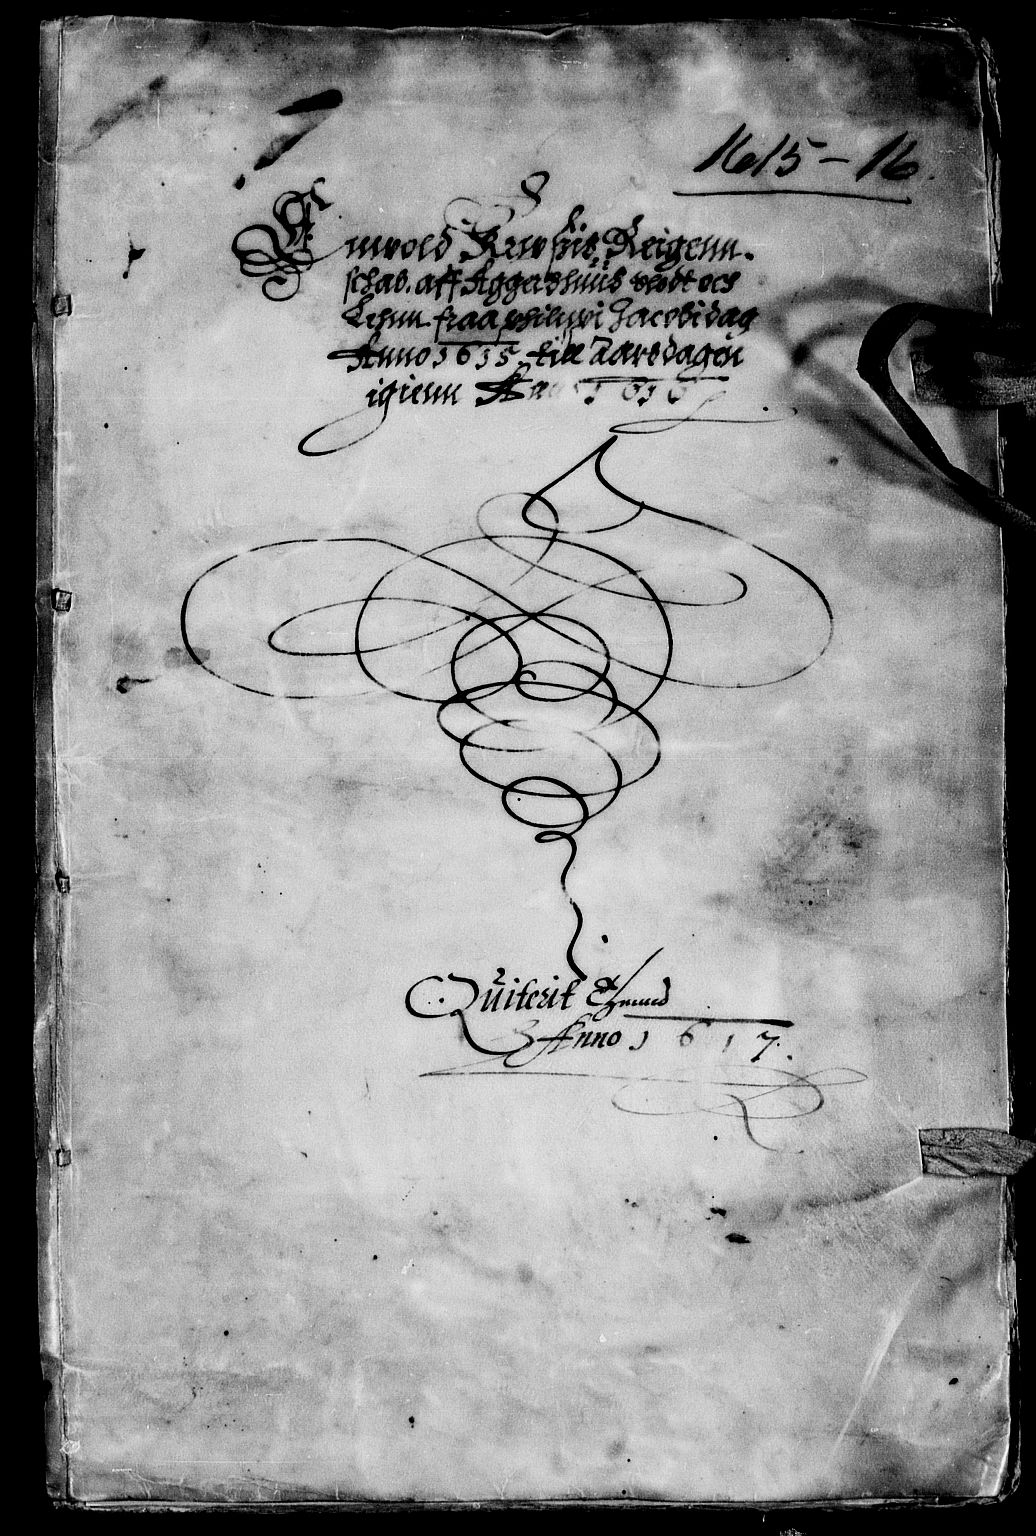 1615-16.
Enwold Krvsis Reigenn-
schab. aff Aggershuus slodt ocs
Lehnn. fraa philippi Jacobi dag
Anno 1615. till Aarsdagen
igienn Anno 1616
Quiterit
Anno 1617.